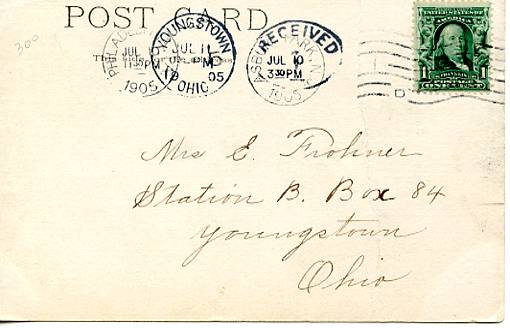 300
POST CARD
PHILADEL
JUL
11 30PM
1905
YOUNGSTOWN
JUL 11
M
19 05
OHIO
ASBURY PARK, N.J.
JUL 10
3 30PM
1905
RECEIVED
D
UNITED STATES OF AMERICA
FRANKLIN
1 1
POSTAGE
ONE CENT
Mrs E. Frohner
Station B. Box 84
Youngstown
Ohio